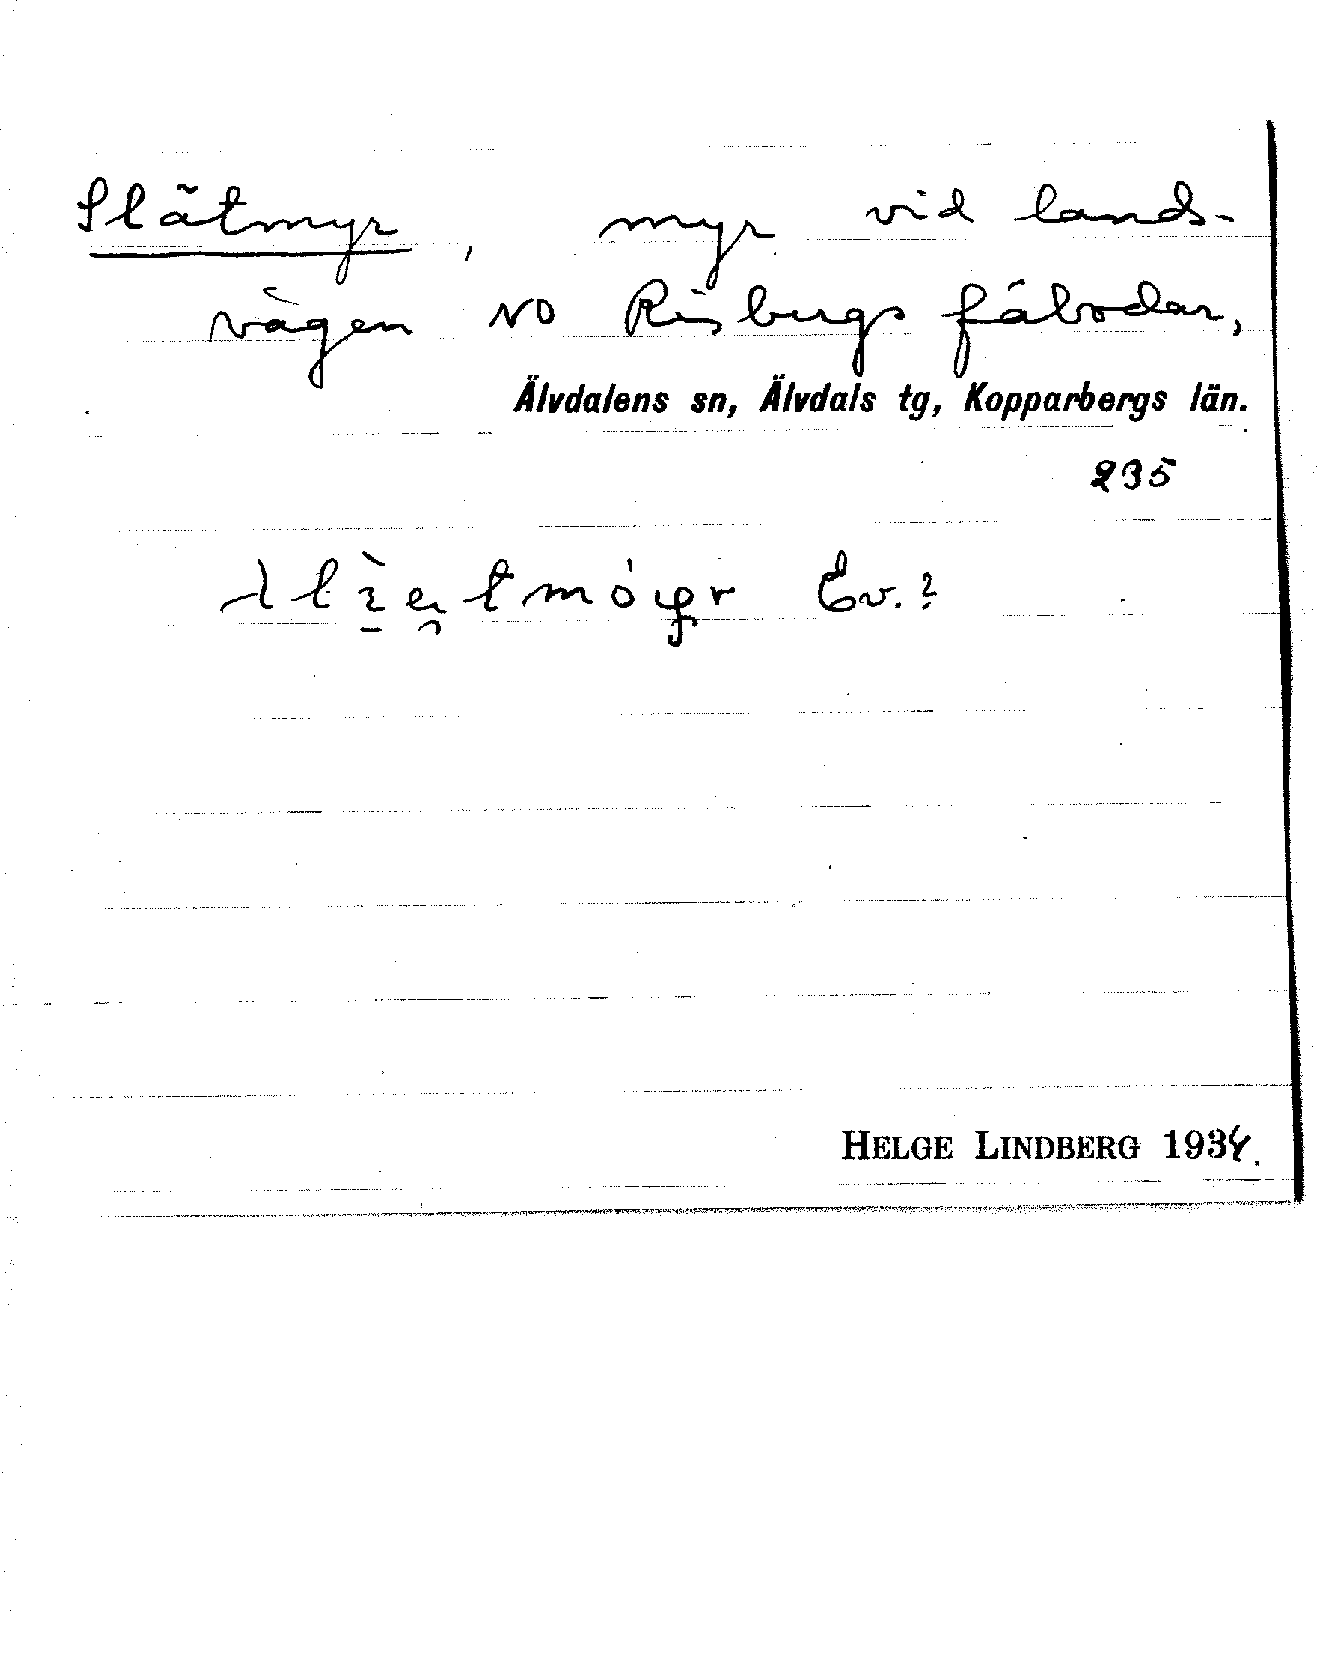 Slätmyr, myr vid lands-
vägen NO Risbergs fäbodar,
Älvdalens sn, Älvdals tg, Kopparbergs län.
235
Ev.?
HELGE LINDBERG 1934.